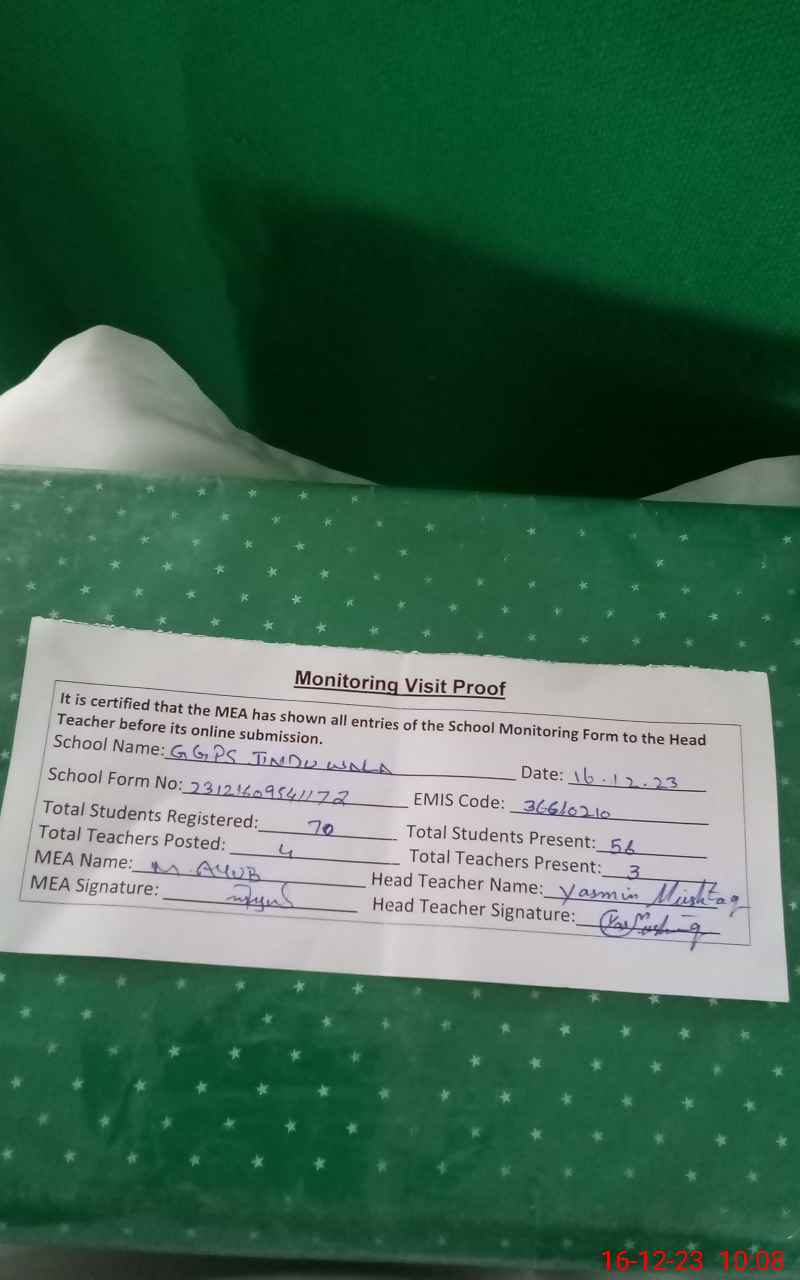 Monitoring Visit Proof
It is certified that the MEA has shown all entries of the School Monitoring Form to the Head
Teacher before its online submission.
School Name: GGPS JINDU WALA Date: 16.12.23
School Form No: EMIS Code: 36610210
Total Students Registered: 70 Total Students Present: 56
Total Teachers Posted: 4 Total Teachers Present: 3
MEA Name: M. AYUB Head Teacher Name: Yasmin Mushtaq
MEA Signature: Head Teacher Signature:
16-12-23 10:08